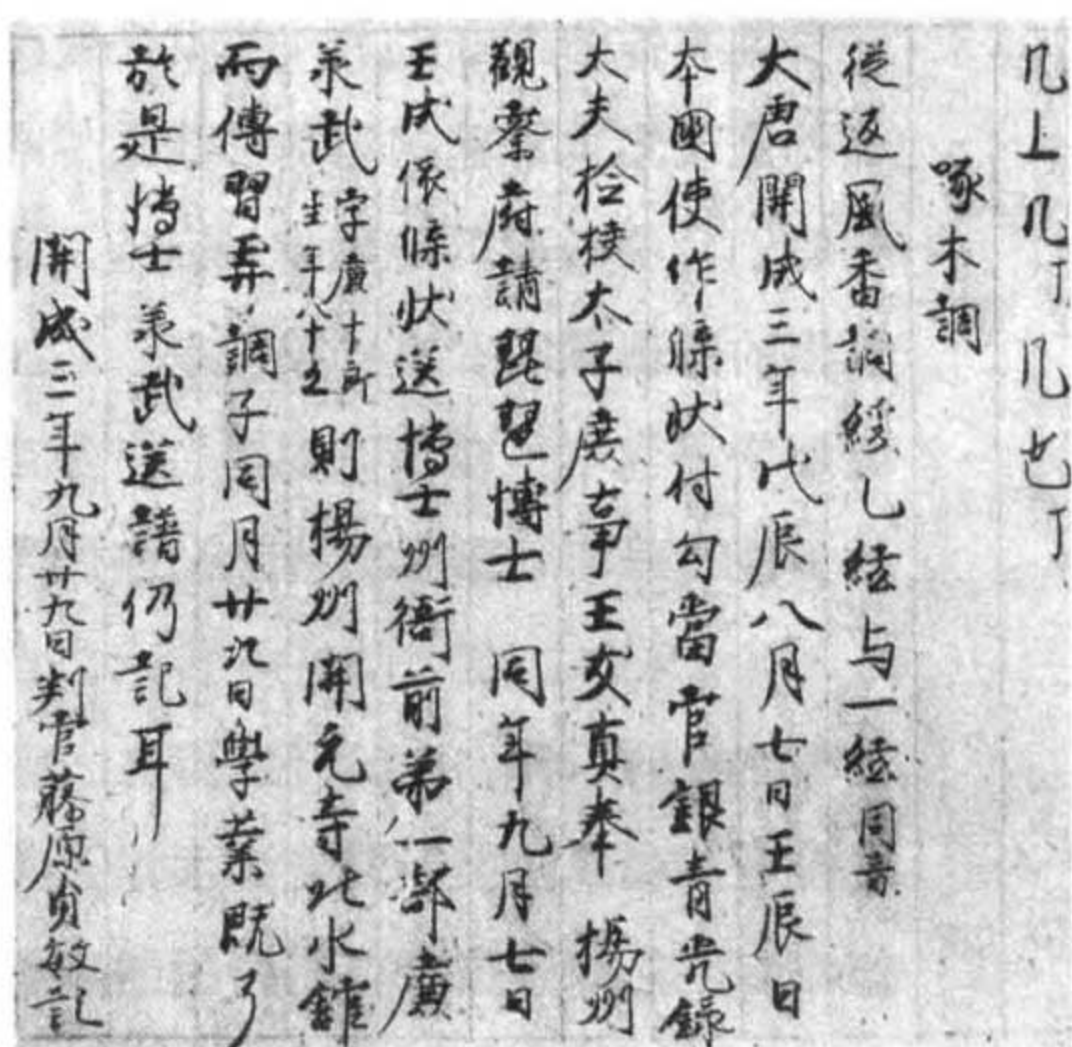 几上几丁几七丁
啄木調
從返風香調緩乚絃与一絃同音
大唐開成三年戊辰八月七日壬辰日
本國使作牒狀付勾當官銀青光錄
大夫檢挍太子庶事王友真奉 楊州
觀察府請琵琶博士 同年九月七日
壬戌依牒狀送博士州衙前第一部廉
承武 字廣十郎 生年八十五 則楊州開元寺北水舘
而傳習弄調子同月廿九日學業既了
於是博士承武送譜仍記耳
開成三年九月廿九日判官藤原貞敏記